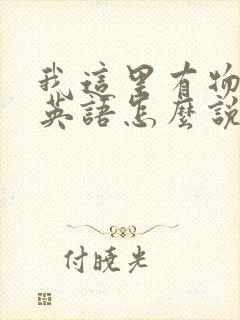 我這里有物
英語怎麼說
付曉光